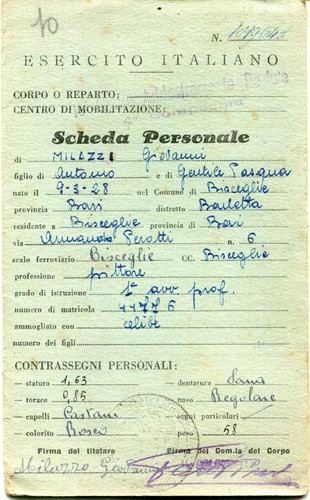 10
N.
ESERCITO ITALIANO
CORPO O REPARTO:
CENTRO DI MOBILITAZIONE:
Scheda Personale
di MILAZZI Giovanni
figlio di Antonio e di Gentile Pasqua
nato il 9-3-28 nel Comune di Bisceglie
provincia Bari distretto Barletta
residente a Bisceglie provincia di Bari
via Armando Perotti n. 6
scalo ferroviario Bisceglie CC. Bisceglie
professione pittore
grado di istruzione 1ª avv. prof.
numero di matricola 44776
ammogliato con celibe
numero dei figli
CONTRASSEGNI PERSONALI:
statura 1,63 dentatura Sana
torace 0,85 naso Regolare
capelli Castani segni particolari
colorito Roseo peso 58
Firma del titolare Firma del Com.te del Corpo
Milazzo Giovanni